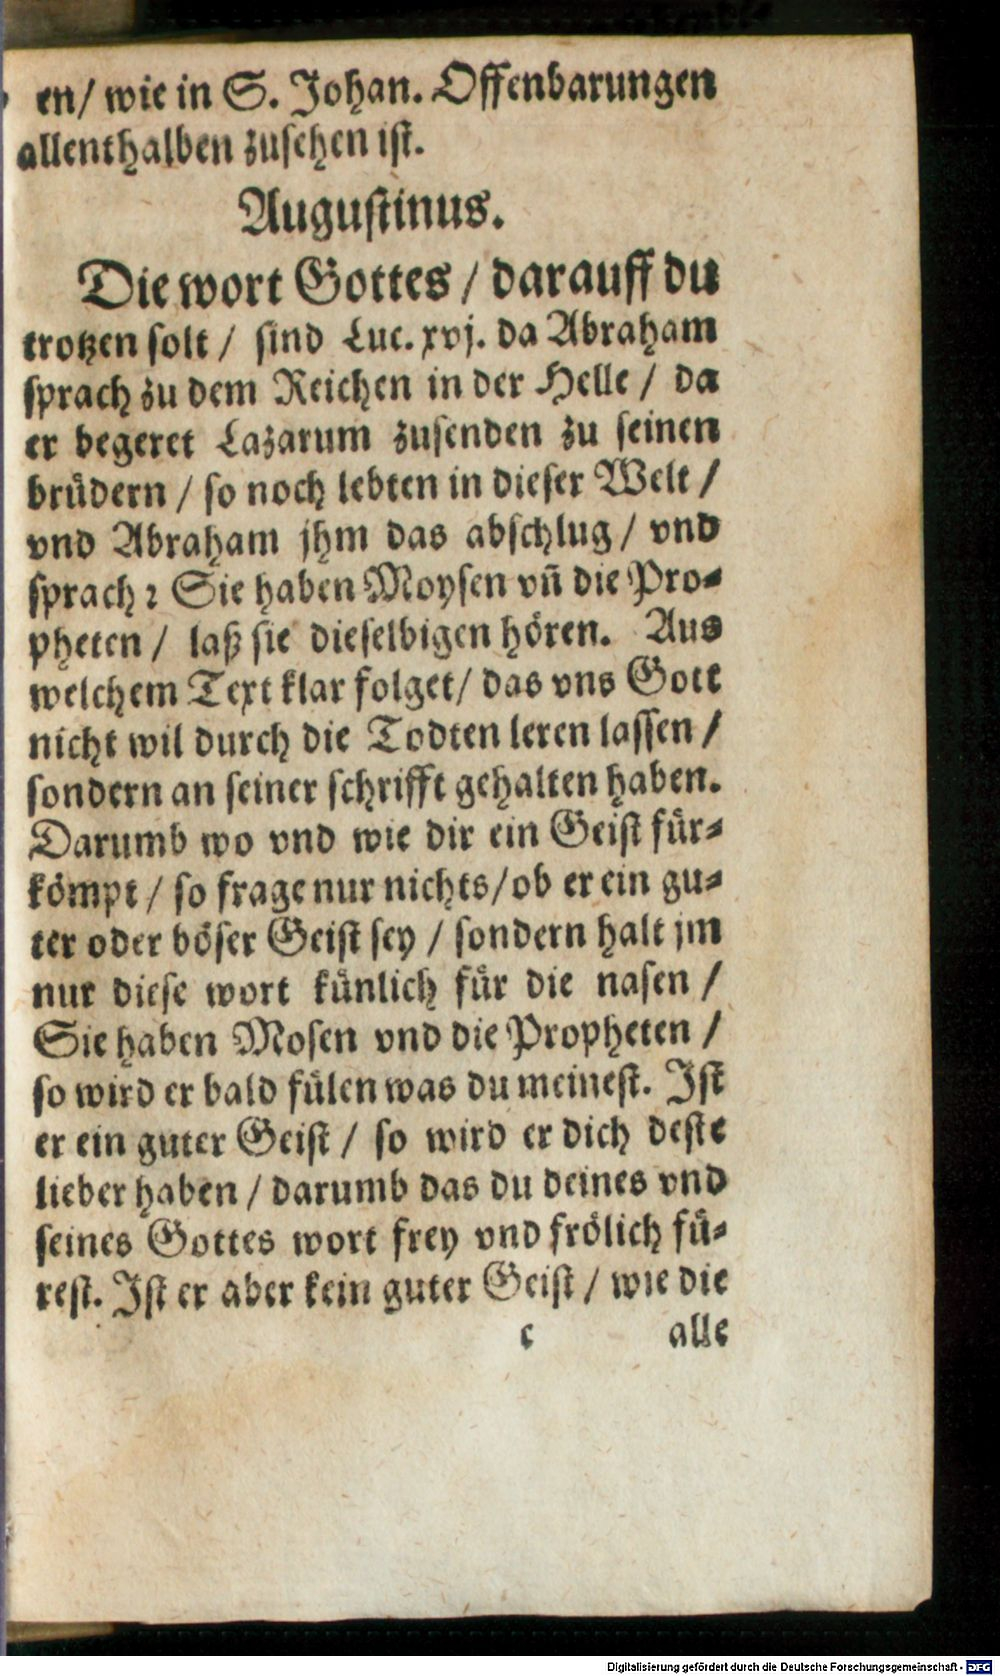 en/ wie in S. Johan. Offenbarungen
allenthalben zusehen ist.
Augustinus.
Die wort Gottes / darauff du
trotzen solt / sind Luc. xvj. da Abraham
sprach zu dem Reichen in der Helle / da
er begeret Lazarum zusenden zu seinen
brüdern / so noch lebten in dieser Welt /
vnd Abraham jhm das abschlug / vnd
sprach: Sie haben Moysen vn̄ die Pro-
pheten / laß sie dieselbigen hören. Aus
welchem Text klar folget/ das vns Gott
nicht wil durch die Todten leren lassen /
sondern an seiner schrifft gehalten haben.
Darumb wo vnd wie dir ein Geist für-
kömpt / so frage nur nichts/ ob er ein gu-
ter oder böser Geist sey / sondern halt jm
nur diese wort künlich für die nasen /
Sie haben Mosen vnd die Propheten /
so wird er bald fülen was du meinest. Ist
er ein guter Geist / so wird er dich deste
lieber haben / darumb das du deines vnd
seines Gottes wort frey vnd frölich fü-
rest. Ist er aber kein guter Geist / wie die
c alle
Digitalisierung gefördert durch die Deutsche Forschungsgemeinschaft - DFG